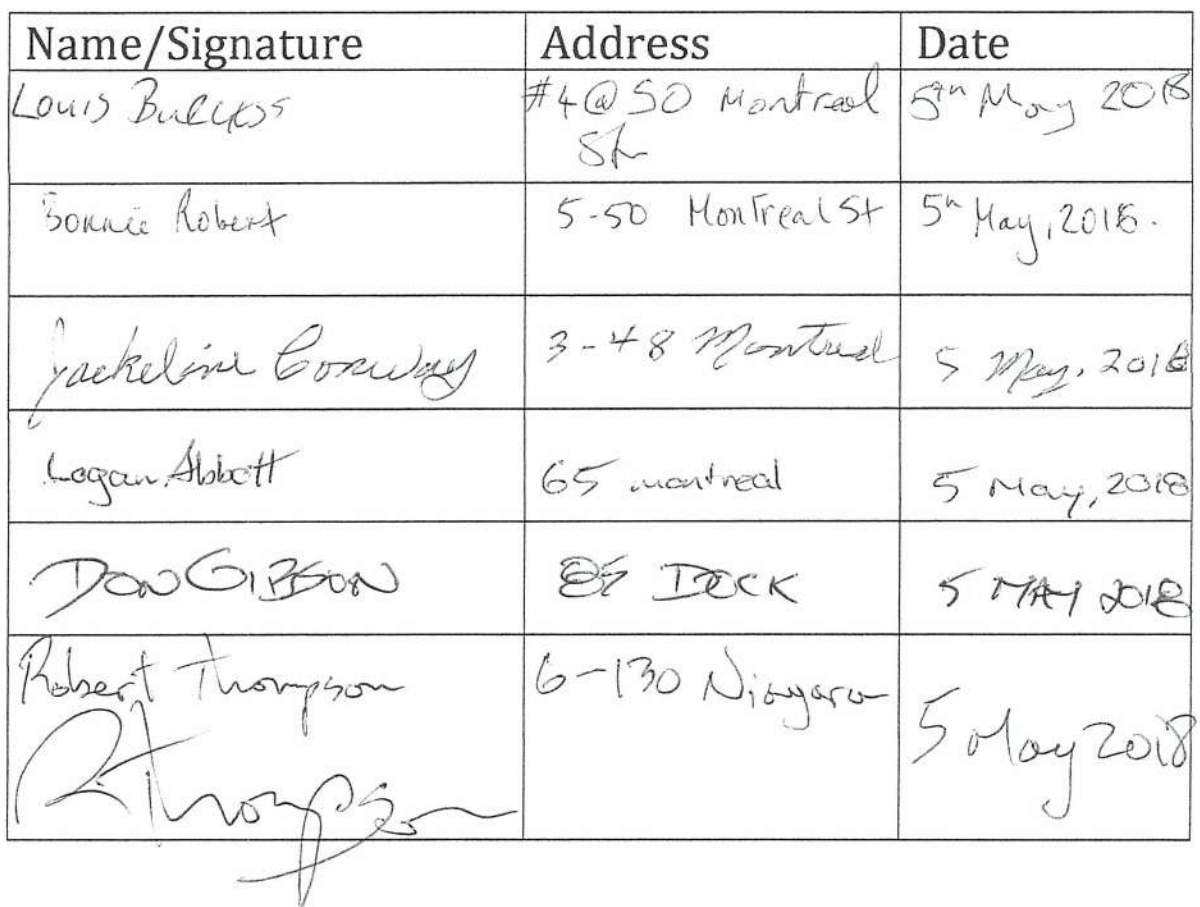 Name/Signature Address Date
Louis #4@50 Montreal 5th May 2018
St
Bonnie Robert 5-50 Montreal St 5th May, 2018.
Jackeline Conway 3-48 Montreal 5 May, 2018
Logan Abbott 65 montreal 5 May, 2018
DON GIBSON DOCK 5 MAY 2018
Robert Thompson 6-130 Niagara 5 May 2018
RThompson